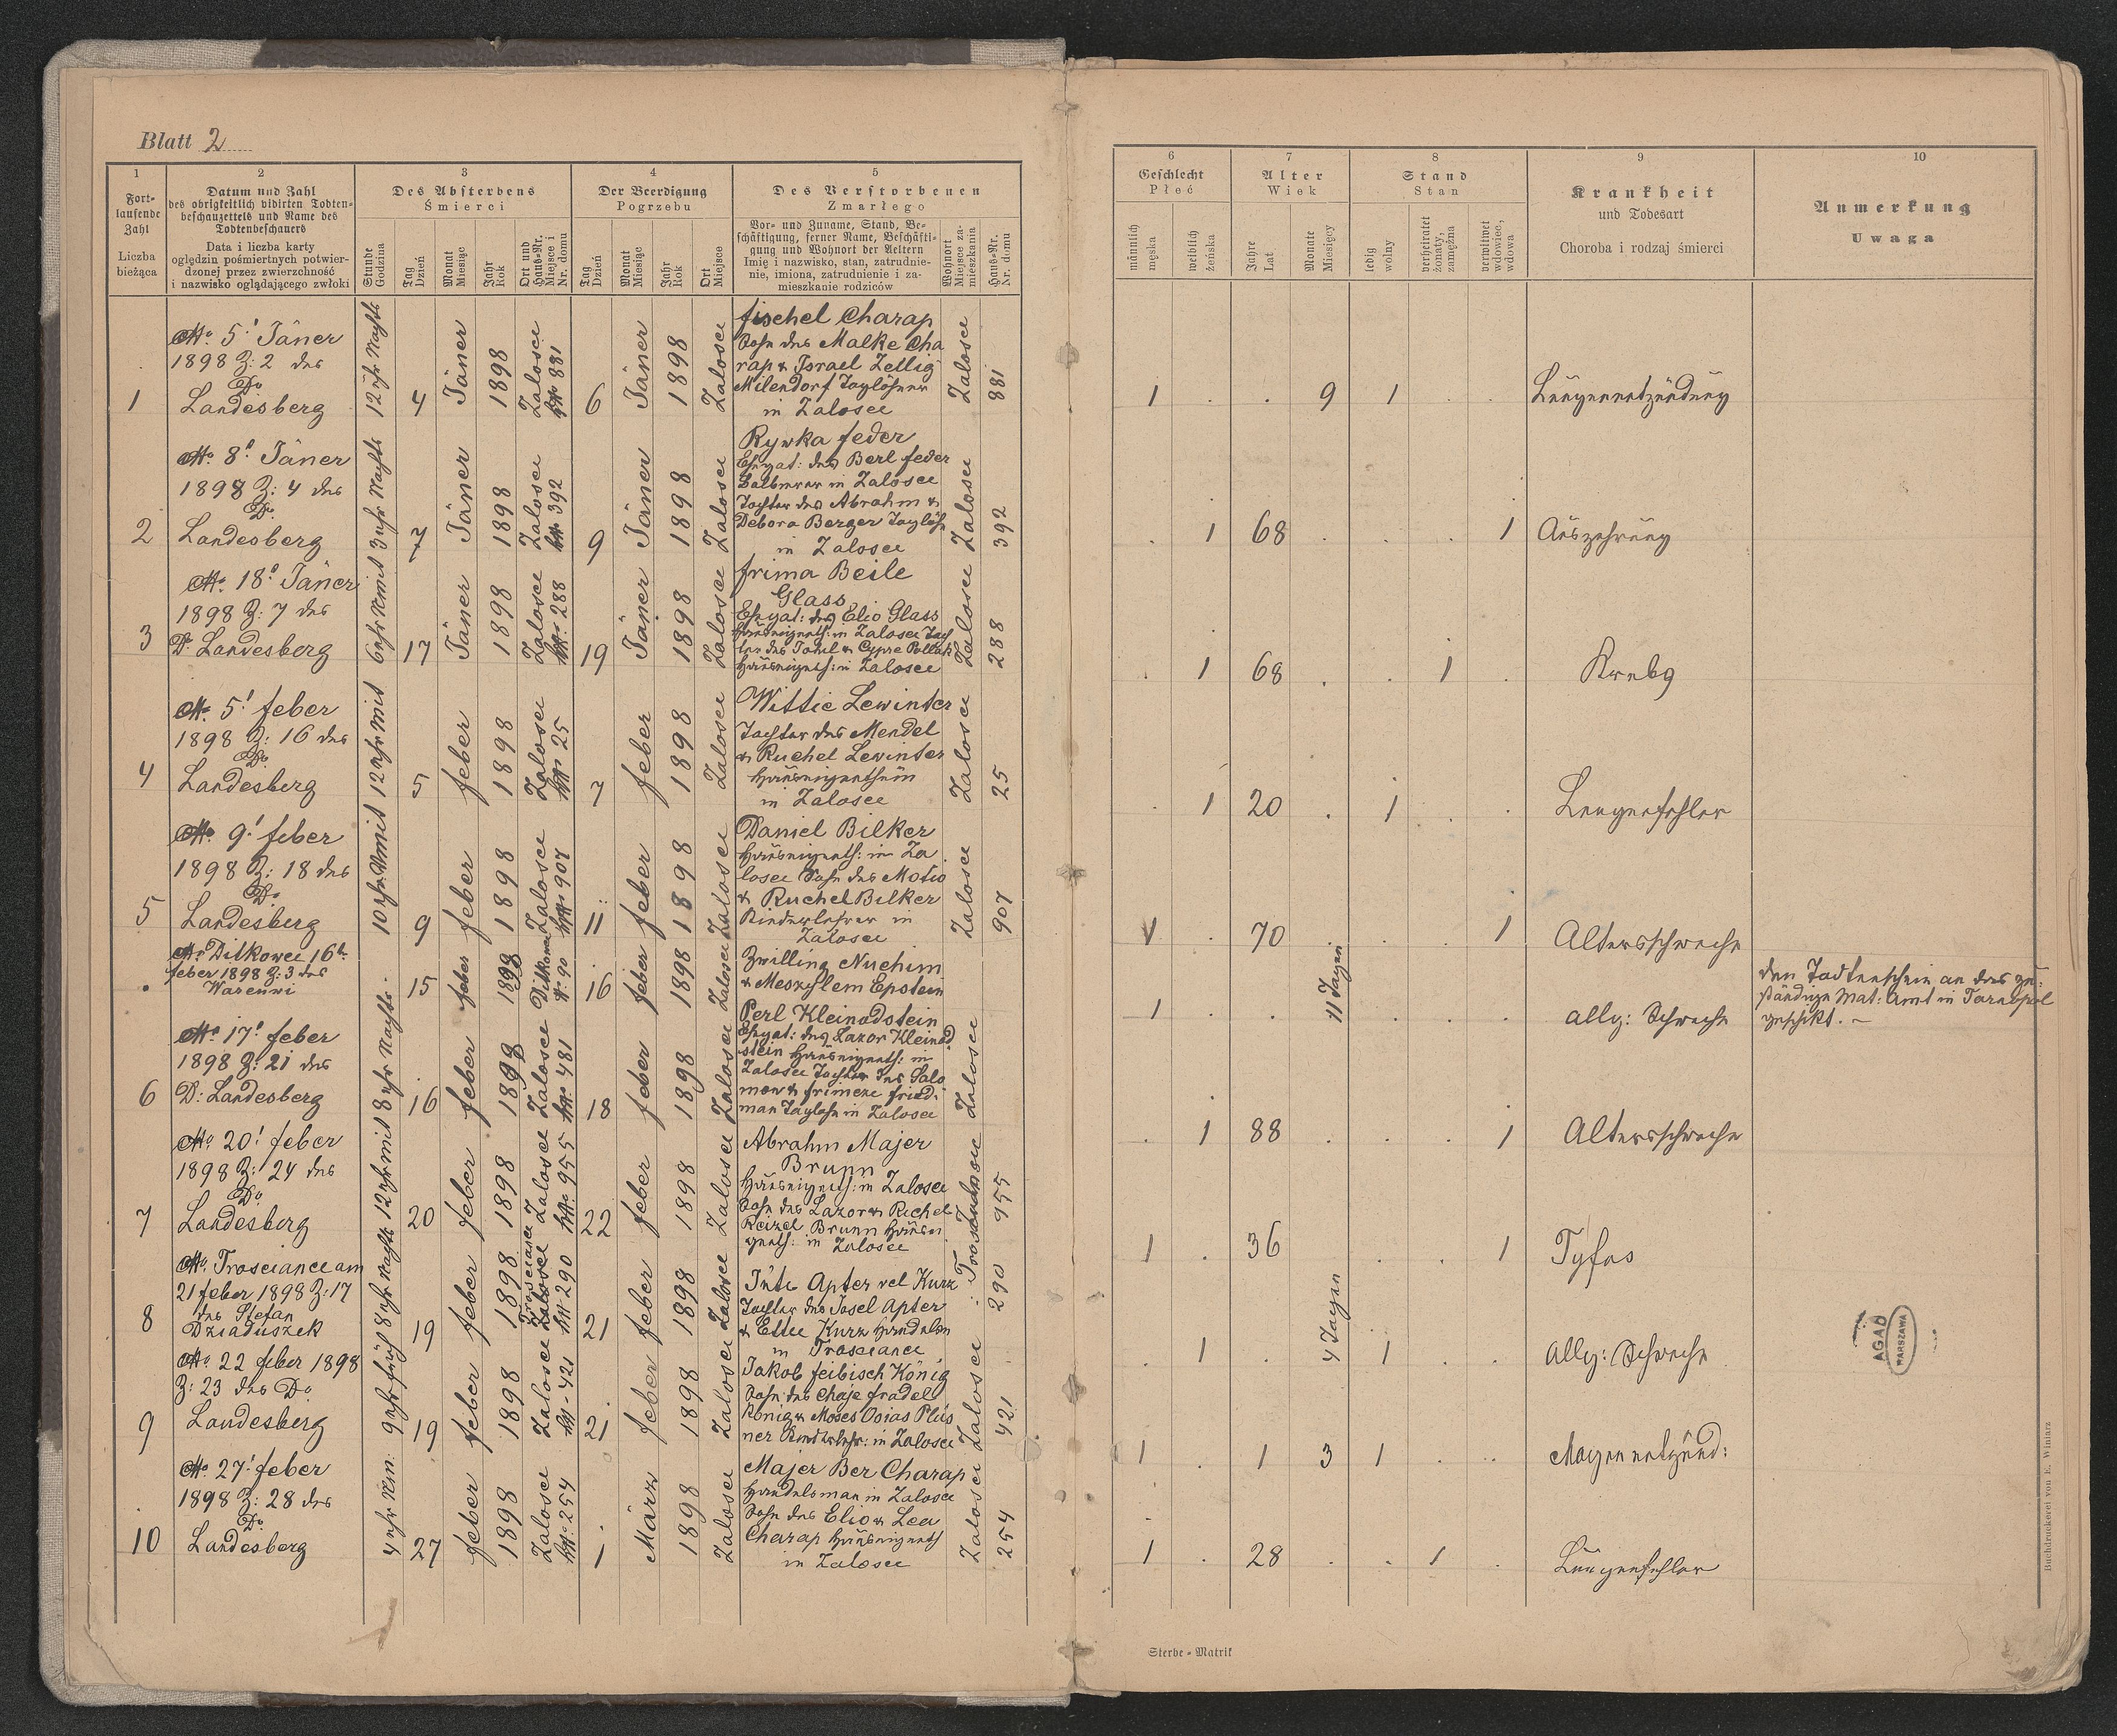 Blatt 2
1
Fort-
laufende
Zahl
Liczba
bieżąca
2
Datum und Zahl
des obrigkeitlich vidirten Todten-
beschauzettels und Name des
Todtenbeschauers
Data i liczba karty
oględzin pośmiertnych potwier-
dzonej przez zwierzchność
i nazwisko oglądającego zwłoki
3
Des Absterbens
Śmierci
Stunde
Godzina
Tag
Dzień
Monat
Miesiąc
Jahr
Rok
Ort und
Haus-Nr.
Miejsce i
Nr. domu
4
Der Beerdigung
Pogrzebu
Tag
Dzień
Monat
Miesiąc
Jahr
Rok
Ort
Miejsce
5
Des Verstorbenen
Zmarłego
Vor- und Zuname, Stand, Be-
schäftigung, ferner Name, Beschäfti-
gung und Wohnort der Aeltern
Imię i nazwisko, stan, zatrudnie-
nie, imiona, zatrudnienie i za-
mieszkanie rodziców
Wohnort
Miejsce za-
mieszkania
Haus-Nr.
Nr. domu
6
Geschlecht
Płeć
männlich
męska
weiblich
żeńska
7
Alter
Wiek
Jahre
Lat
Monate
Miesięcy
8
Stand
Stan
ledig
wolny
verheiratet
żonaty,
zamężna
verwitwet
wdowiec,
wdowa
9
Krankheit
und Todesart
Choroba i rodzaj śmierci
10
Anmerkung
Uwaga
1
5' Jäner
1898 Z: 2 des
Dr
Landesberg
12 uhr Nachts
4
Jäner
1898
Zalosce
881
6
Jäner
1898
Zalosce
Fischel Charap
Sohn des Malke Cha
rap & Israel Zellig
Milendorf Taglöhner
in Zalosce
Zalosce
881
1 . . 9 1 . .
Lungenentzündung
2
8' Jäner
1898 Z: 4 des
Dr
Landesberg
3 uhr Nachts
7
Jäner
1898
Zalosce
392
9
Jäner
1898
Zalosce
Rywka Feder
Ehgat: des Berl Feder
in Zalosce
Tochter des Abrahm &
Debora Berger Taglöh
in Zalosce
Zalosce
392
. 1 68 . . . 1
Auszehrung
3
18' Jäner
1898 Z: 7 des
Dr Landesberg
6 uhr
17
Jäner
1898
Zalosce
288
19
Jäner
1898
Zalosce
Frima Beile
Glass
Ehgat: des Elio Glass
Hauseigenth: in Zalosce Toch
ter des & Cypre Pollak
Hauseigenth: in Zalosce
Zalosce
288
. 1 68 . . 1 .
Krebs
4
5' Feber
1898 Z: 16 des
Dr
Landesberg
12 uhr Mit
5
Feber
1898
Zalosce
25
7
Feber
1898
Zalosce
Wittie Lewinter
Tochter des Mendel
& Ruchel Lewinter
Hauseigenthum
in Zalosce
Zalosce
25
. 1 20 . 1 . .
Lungenfehler
5
9' Feber
1898 Z: 18 des
Dr
Landesberg
10 uhr Vmit
9
Feber
1898
Zalosce
907
11
Feber
1898
Zalosce
Daniel Bilker
Hauseigenth: in Za
losce Sohn des Motio
& Ruchel Bilker
Kinderlehrer in
Zalosce
Zalosce
907
1 . 70 . . . 1
Altersschwäche
Ditkowce 16
Feber 1898 Z: 3 des
Warenwi
15
Feber
1898
Ditkowce
90
16
Feber
1898
Zalosce
Zwilling Nuchim
& Meszylem Epstein
1 . . 11 Tagen . . .
allg: Schwäche
den Todtenschein an das zu-
ständige Mat: Amt in Tarnopol
geschikt. –
6
17' Feber
1898 Z: 21 des
D: Landesberg
8 uhr Nachts
16
Feber
1898
Zalosce
481
18
Feber
1898
Zalosce
Perl Kleinodstein
Ehgat: des Lazor Kleinod
stein Hauseigenth: in
Zalosce Tochter des Salo
mon & Frimene Fried.
man Taglöhn in Zalosce
Zalosce
. 1 88 . . . 1
Altersschwäche
7
20' Feber
1898 Z: 24 des
Dr
Landesberg
12 uhr mit
20
Feber
1898
Zalosce
955
22
Feber
1898
Zalosce
Abrahm Majer
Brunn
Hauseigenth: in Zalosce
Sohn des Lazor & Richel
Reizel Brunn Hausei
genth: in Zalosce
955
1 . 36 . . 1
Tyfus
8
Trosciance am
21 Feber 1898 Z: 17
des Stefan
Dziaduszek
8 uhr Nachts
19
Feber
1898
Trosciance
290
21
Feber
1898
Zalosce
Jüte Apter vel Kurz
Tochter des Josel Apter
& Ettie Kurz Handelsm
in Trosciance
290
. 1 . 4 Tagen 1 . .
allg: Schwäche
9
22 Feber 1898
Z: 23 des Dr
Landesberg
9 uhr früh
19
Feber
1898
Zalosce
421
21
Feber
1898
Zalosce
Jakob Feibisch König
Sohn des Chaje Fradel
König & Moses Osias Plüs
ner Kinderlehr: in Zalosce
Zalosce
421
1 . 1 3 1 . .
Magenentzünd:
10
27' Feber
1898 Z: 28 des
Dr
Landesberg
4 uhr Nm.
27
Feber
1898
Zalosce
254
1
März
1898
Zalosce
Majer Ber Charap
Handelsman in Zalosce
Sohn des Elio & Lea
Charap Hauseigenth
in Zalosce
Zalosce
254
1 . 28 . . 1 .
Lungenfehler
AGAD
WARSZAWA
Sterbe-Matrik
Buchdruckerei von E. Winiarz